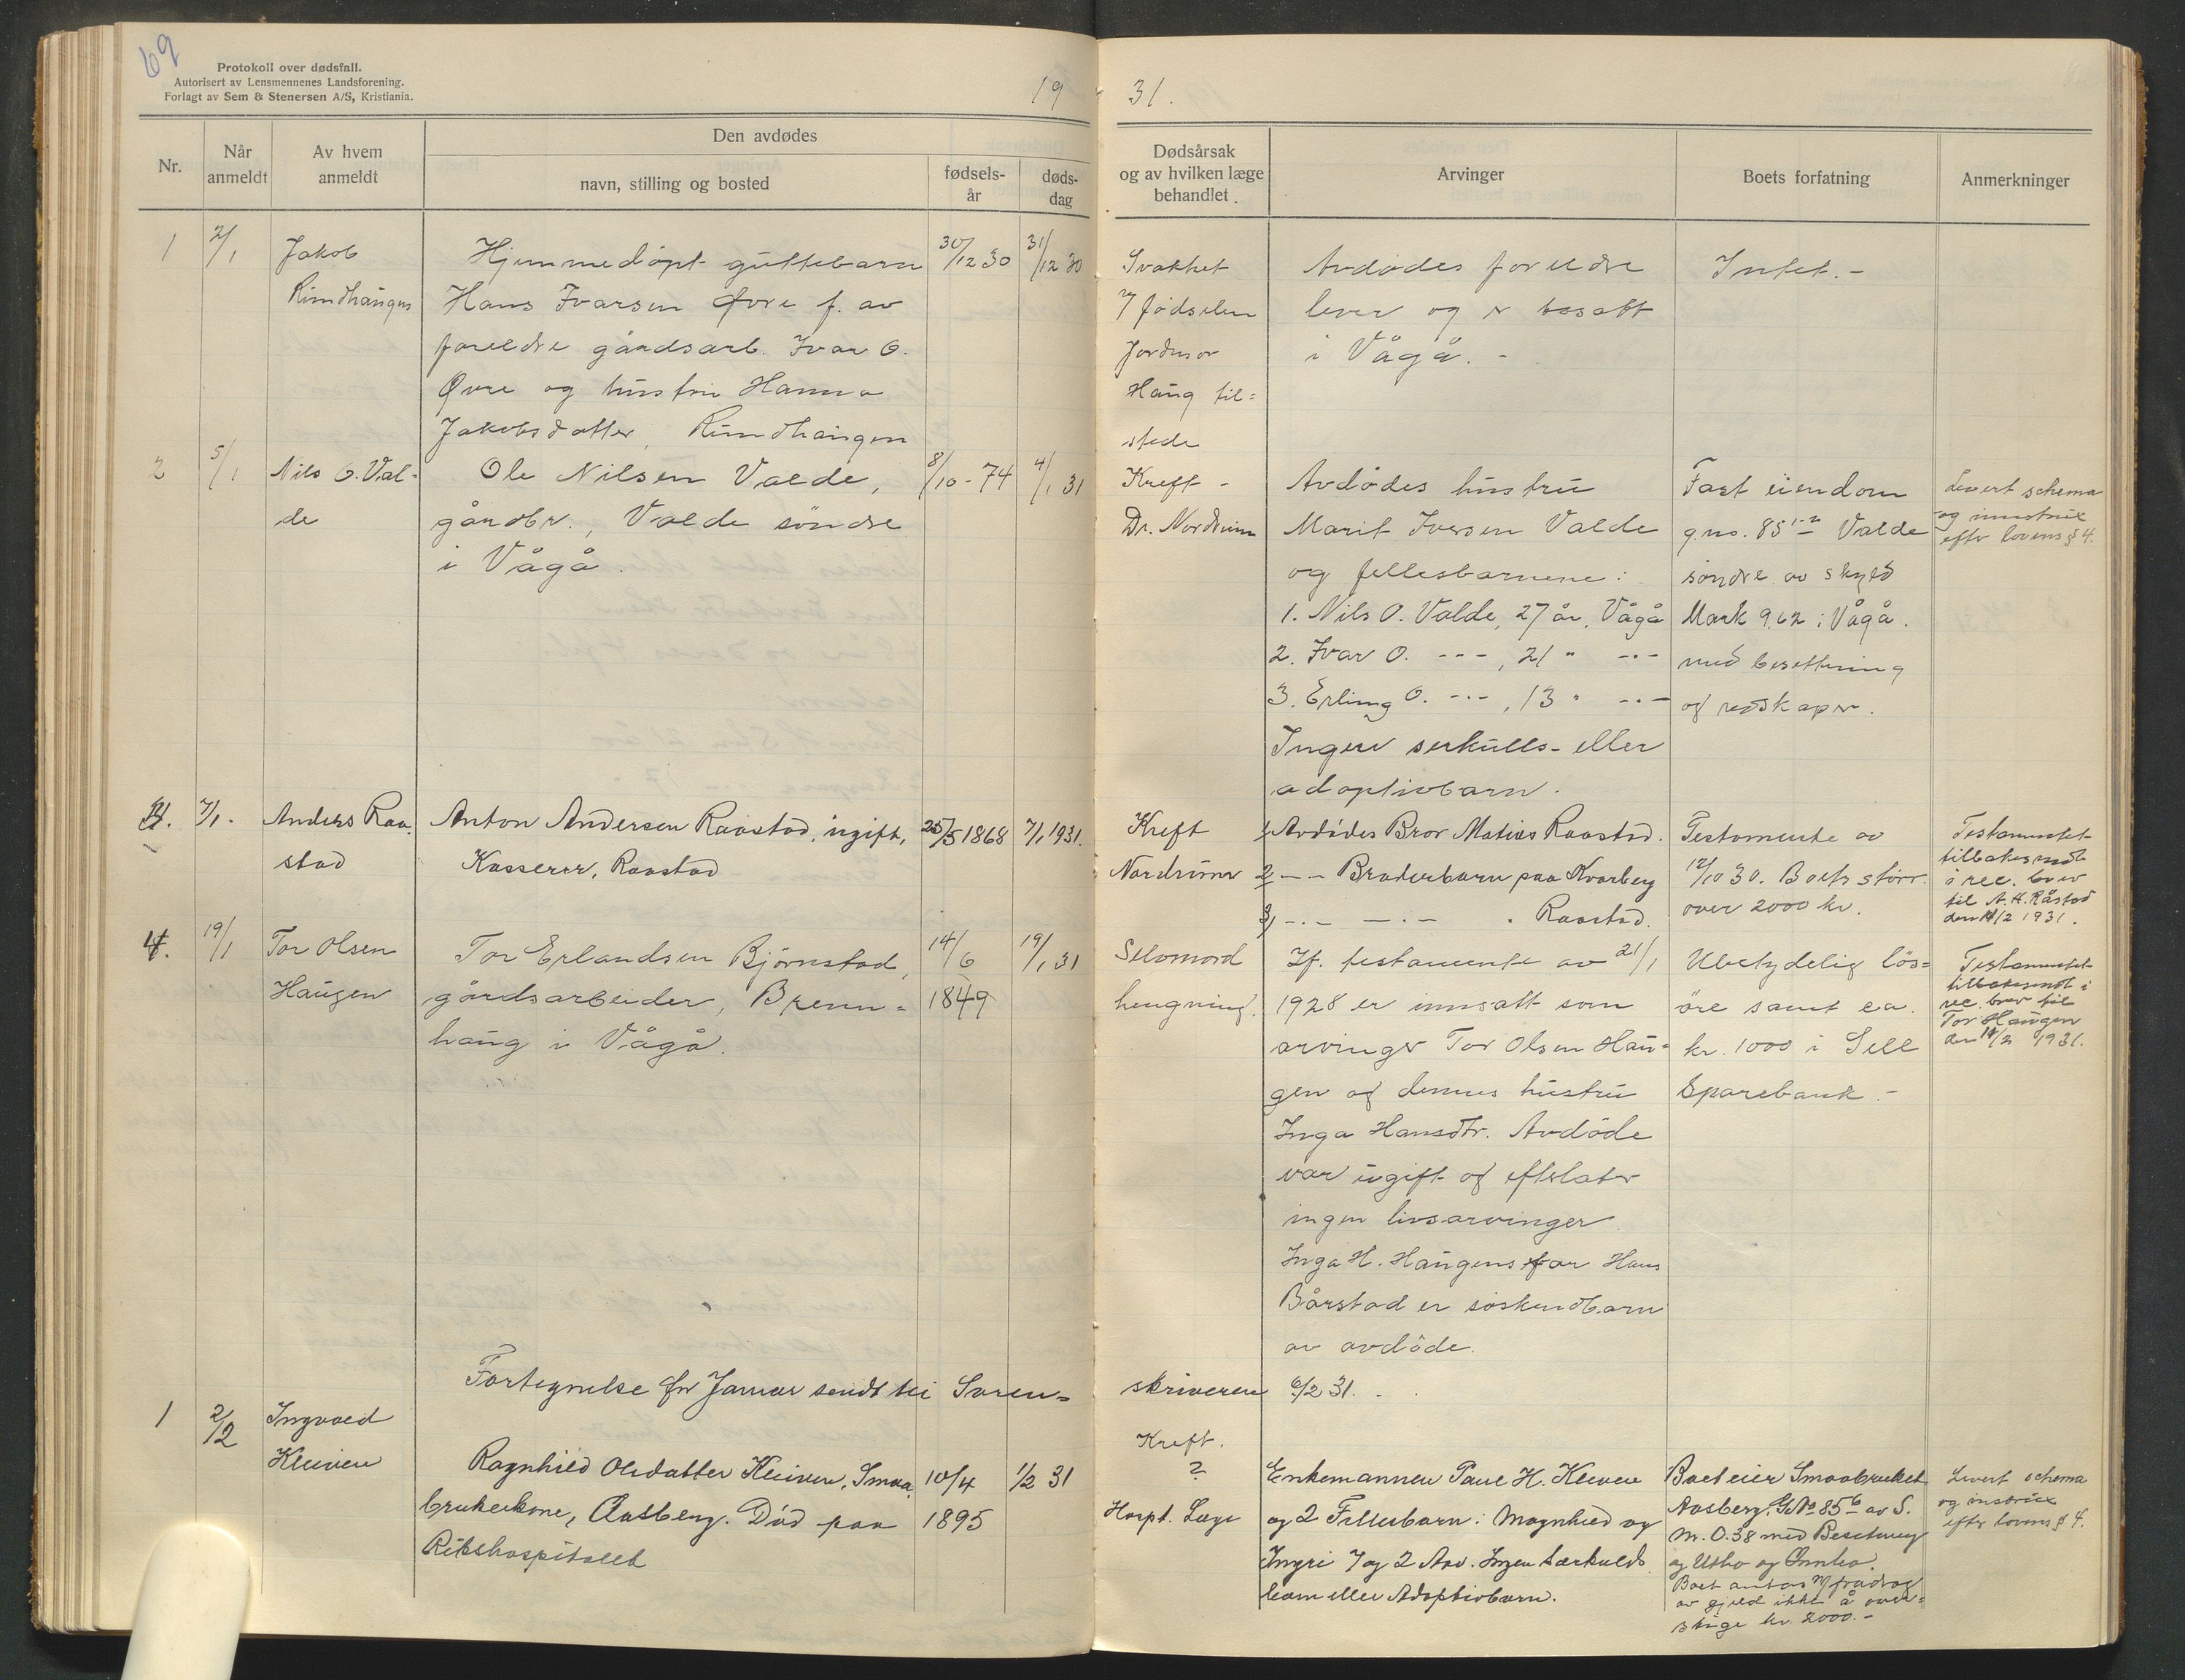 69
Protokoll over dødsfall.
Autorisert av Lensmennenes Landsforening.
Forlagt av Sem & Stenersen A/S, Kristiania.
19
31.
Nr.
Når anmeldt
Av hvem anmeldt
Den avdødes
navn, stilling og bosted
fødsels-år
døds-dag
Dødsårsak og av hvilken læge behandlet
Arvinger
Boets forfatning
Anmerkninger
1
2/1
Jakob
Rundhaugen
Hjemmedøpt guttebarn
Hans Ivarsen Øvre f. av
foreldre gårdsarb. Ivar O.
Øvre og hustru Hanna
Jakobsdatter, Rundhaugen
30/12 30
31/12 30
Svakhet
v/ fødselen
Jordmor
Haug til=
stede
Avdødes foreldre
lever og er bosatt
i Vågå. -
Intet. -
2
5/1
Nils O. Val-
de
Ole Nilsen Valde,
gårdbr., Valde søndre
i Vågå.
8/10 - 74
4/1 31
Kreft -
Dr. Nordrum
Avdødes hustru
Marit Iversen Valde
og fellesbarnene:
1. Nils O. Valde, 27 år, Vågå
2. Ivar O. -"- , 21 " -"-
3. Erling O. -"- , 13 " -"-
Ingen serkulls- eller
adoptivbarn.
Fast eiendom
g.no. 85 1-2 Valde
søndre av skyld
Mark 9,62 i Vågå.
med besetning
og redskaper.
Levert schema
og instrux
efter lovens § 4.
3.
7/1.
Anders Raa
stad
Anton Andersen Raastad, ugift,
Kasserer, Raastad
25/5 1868
7/1 1931.
Kreft
Nordrum
1 Avdødes Bror Matias Raastad.
2 -- Broderbarn paa Kvarberg
3 -.- -.- " Raastad.
Testamente av
12/10 30. Boets størr.
over 2000 kr.
Testamentet
tilbakesendt
i rec. brev
til A. H. Råstad
den 11/2 1931.
4.
19/1
Tor Olsen
Haugen
Tor Erlandsen Bjørnstad,
gårdsarbeider, Brenn=
haug i Vågå.
14/6
1849
19/1 31
Selvmord
hengning.
If. testamente av 21/1
1928 er innsatt som
arvinger Tor Olsen Hau=
gen og dennes hustru
Inga Hansdtr. Avdøde
var ugift og efterlater
ingen livsarvinger.
Inga H. Haugens far Hans
Bårstad er søskendbarn
av avdøde.
Ubetydelig løs=
øre samt ca.
kr. 1000 i Sell
Sparebank. -
Testamentet
tilbakesendt i
rec. brev til
Tor Haugen
den 11/2 1931.
Fortegnelse for Januar sendt til Soren=
skriveren 6/2 31. -
1
2/2
Ingvald
Kleiven
Ragnhild Olsdatter Kleiven, Smaa
brukerkone, Aasberg. Død paa
Rikshospitalet
10/4
1895
1/2 31
Kreft.
?
Hospt. Læge
Enkemannen Paul H. Kleven
og 2 Fellesbarn: Magnhild og
Ingri 7 og 2 Aar. Ingen Særkulds
barn eller Adoptivbarn.
Boet eier Smaabruket
Aasberg, G.No 85 6 av S.
M. 0.38 med Besetning
og Utbo og Innbo.
Boet antas m/ fradrag
av gjeld ikke å over=
stige kr. 2000. -
Levert schema
og instrux
efter lovens § 4.